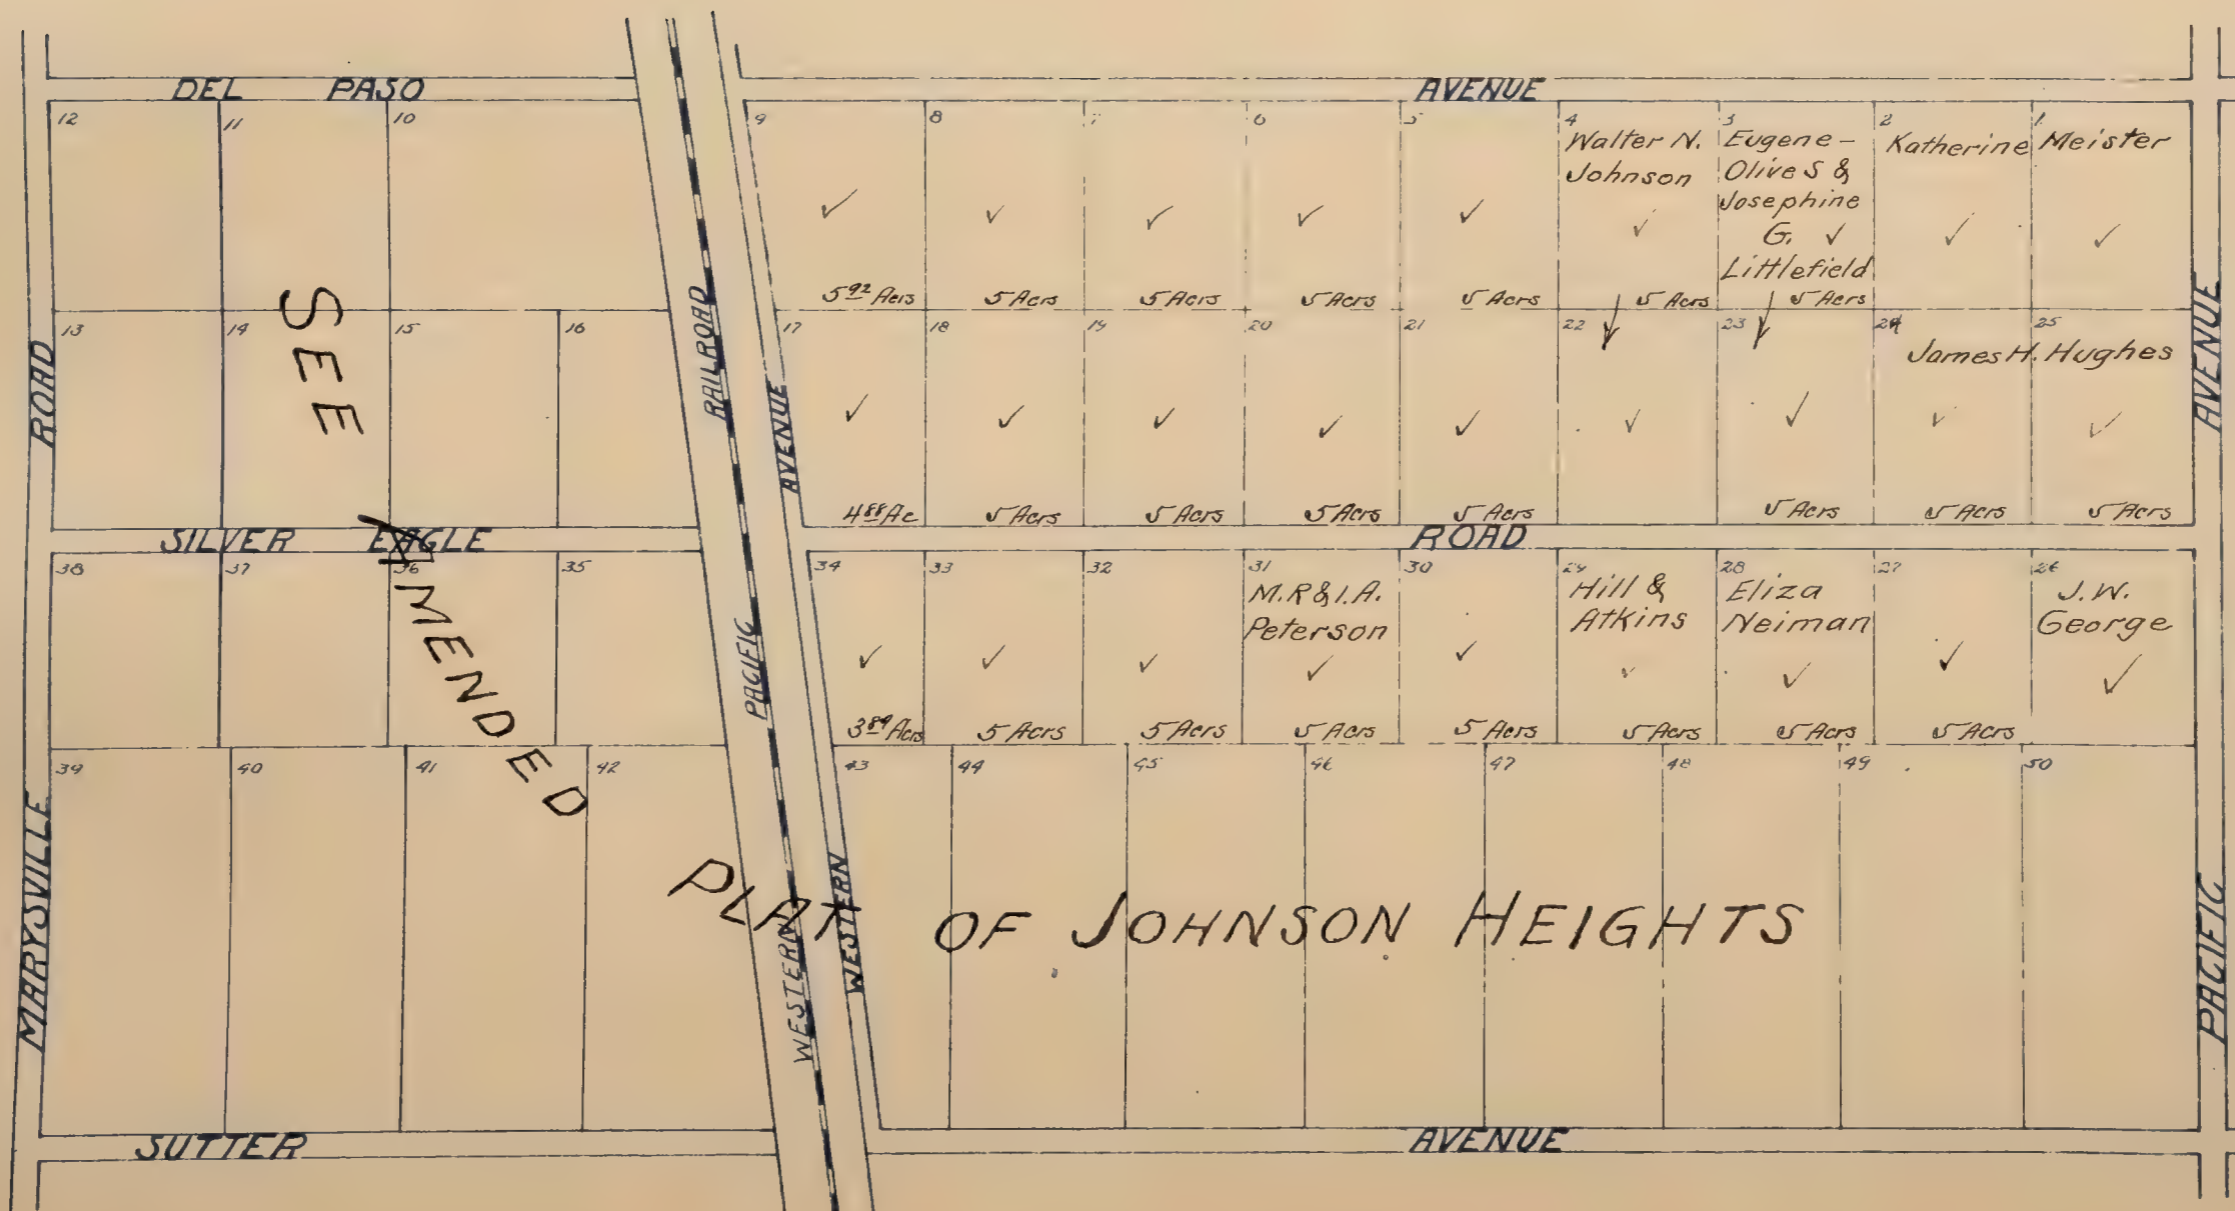 DEL PASO AVENUE
12 11 10 9 8 7 6 5 4 3 2 1
Walter N.
Johnson
Eugene -
Olive S &
Josephine
G. ✓
Littlefield
Katherine Meister
✓ ✓ ✓ ✓ ✓ ✓ ✓ ✓
5 92 Acrs 5 Acrs 5 Acrs 5 Acrs 5 Acrs 5 Acrs 5 Acrs
13 14 15 16 17 18 19 20 21 22 23 24 25
James H. Hughes
✓ ✓ ✓ ✓ ✓ ✓ ✓ ✓ ✓
4 88 Ac 5 Acrs 5 Acrs 5 Acrs 5 Acrs 5 Acrs 5 Acrs 5 Acrs
SILVER EAGLE ROAD
38 37 36 35 34 33 32 31 30 29 28 27 26
M.R & I.A.
Peterson
Hill &
Atkins
Eliza
Neiman
J.W.
George
✓ ✓ ✓ ✓ ✓ ✓ ✓ ✓ ✓
3 89 Acrs 5 Acrs 5 Acrs 5 Acrs 5 Acrs 5 Acrs 5 Acrs 5 Acrs
39 40 41 42 43 44 45 46 47 48 49 50
SEE
AMENDED
PLAT OF JOHNSON HEIGHTS
SUTTER AVENUE
MARYSVILLE ROAD
WESTERN PACIFIC RAILROAD
WESTERN AVENUE
PACIFIC AVENUE